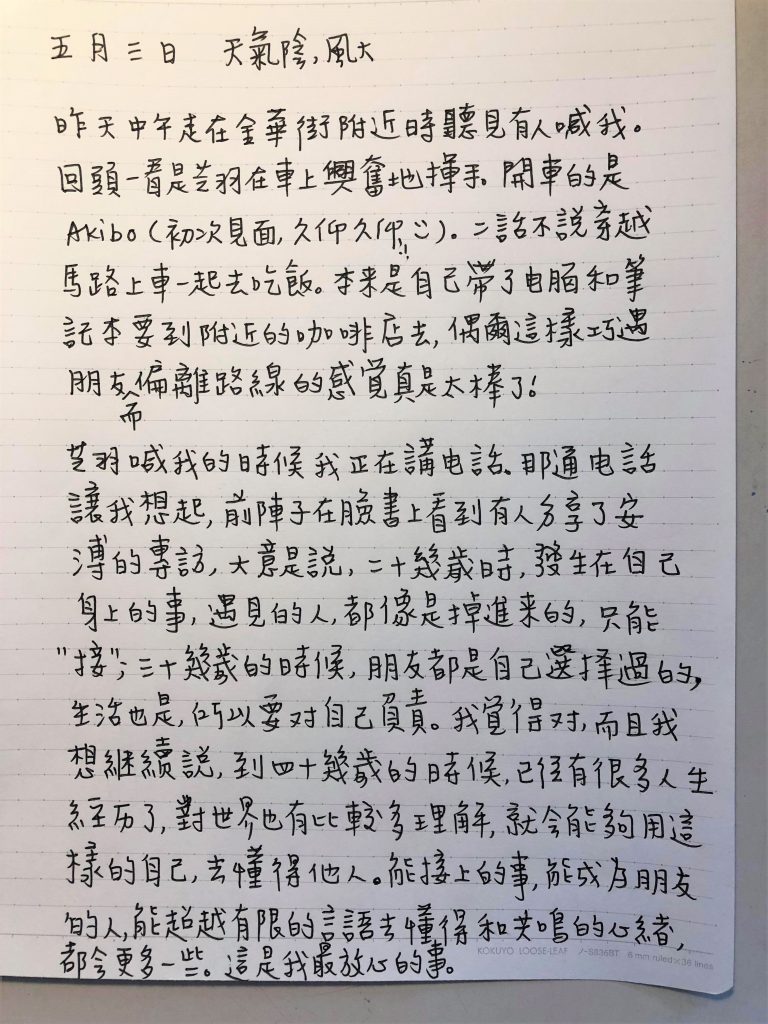 五月三日 天氣陰,風大
昨天中午走在金華街附近時聽見有人喊我。
回頭一看是芝羽在車上興奮地揮手。開車的是
Akibo(初次見面,久仰久仰!! ☺)。二話不說穿越
馬路上車一起去吃飯。本来是自己帶了电腦和筆
記本要到附近的咖啡店去,偶爾這樣巧遇
朋友而偏離路線的感覚真是太棒了!
芝羽喊我的時候我正在講电話。那通电話
讓我想起,前陣子在臉書上看到有人分享了安
溥的專訪,大意是説,二十幾歲時,發生在自己
身上的事,遇見的人,都像是掉進来的,只能
"接";三十幾歲的時候,朋友都是自己選择過的,
生活也是,所以要对自己負責。我覚得对,而且我
想継續説,到四十幾歲的時候,已径有很多人生
経历了,對世界也有比較多理解,就会能夠用這
樣的自己,去懂得他人。能接上的事,能成为朋友
的人,能超越有限的言語去懂得和共鳴的心緒,
都会更多一些。這是我最放心的事。
KOKUYO LOOSE-LEAF ノ-S836BT 6 mm ruled×36 lines